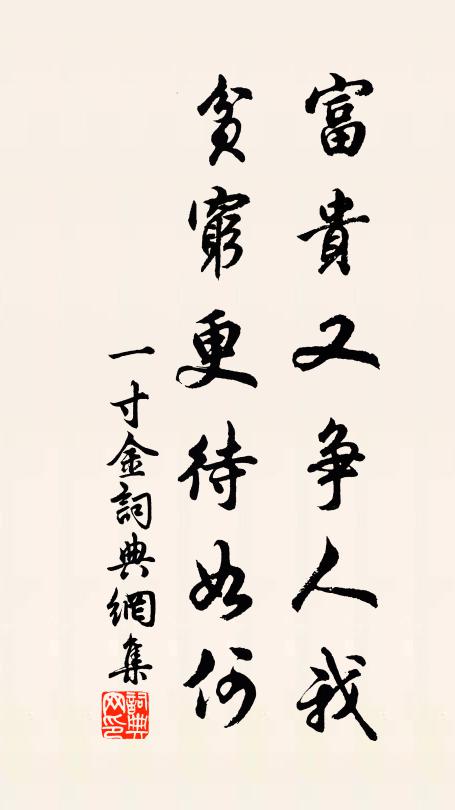 富貴又争人我
貧窮更待如何
一寸金詞典網集
詞典网印